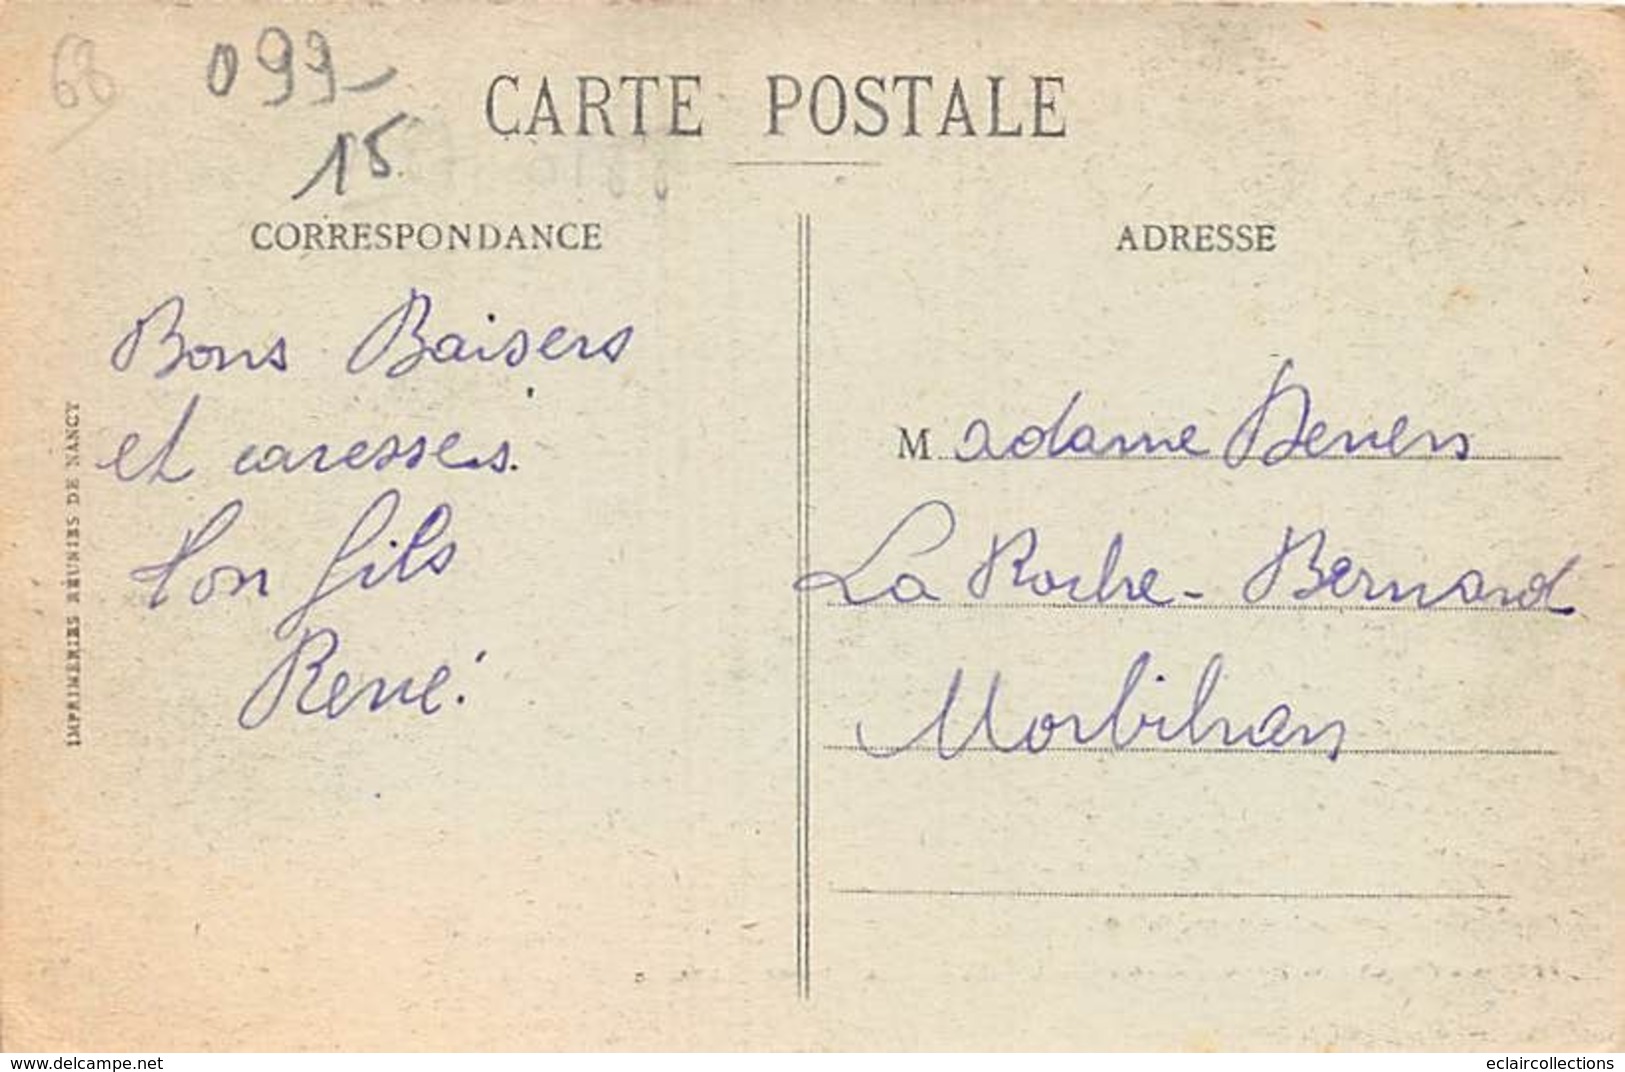 68
099
15
CARTE POSTALE
CORRESPONDANCE
Bons Baisers
et caresses.
Ton fils
René.
IMPRIMERIES RÉUNIES DE NANCY
ADRESSE
Madame
La Roche-Bernard
Morbihan
www.delcampe.net
eclaircollections